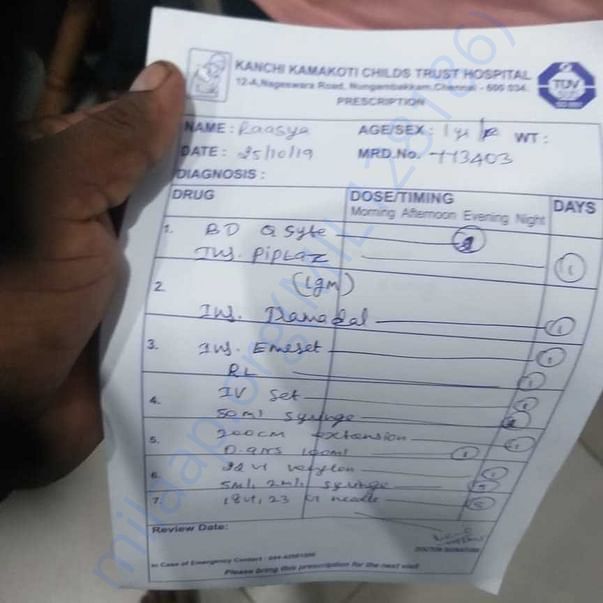 KANCHI KAMAKOTI CHILDS TRUST HOSPITAL
12-A, Nageswara Road, Nungambakkam, Chennai - 600 034.
PRESCRIPTION
TUV
NAME : Raasya AGE/SEX : 1 yr/F WT :
DATE : 25/10/19 MRD.No. 713403
DIAGNOSIS :
DRUG DOSE/TIMING DAYS
Morning Afternoon Evening Night
1. BD Q Syte
Inj. Piptaz 1
(1gm)
2.
Inj. Tramadol 1
3. Inj. Emeset 1
RL 1
4. IV set 1
50ml syringe
5. 200cm extension 1
0.9NS 100ml 1
6. 22 G 1
5ml, 2ml, syringe 5
7. 18G, 23 G needle 5
Review Date:
DOCTOR SIGNATURE
In Case of Emergency Contact :
Please bring this prescription for the next visit
milaap.org(MIL128186)